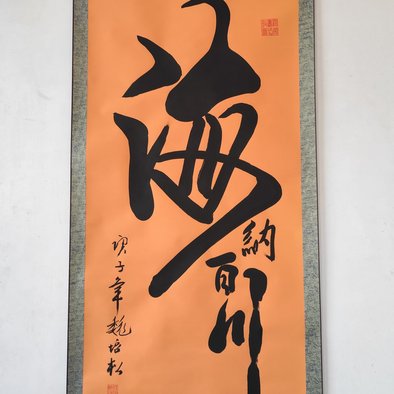 海
纳百川
庚子年魏培松